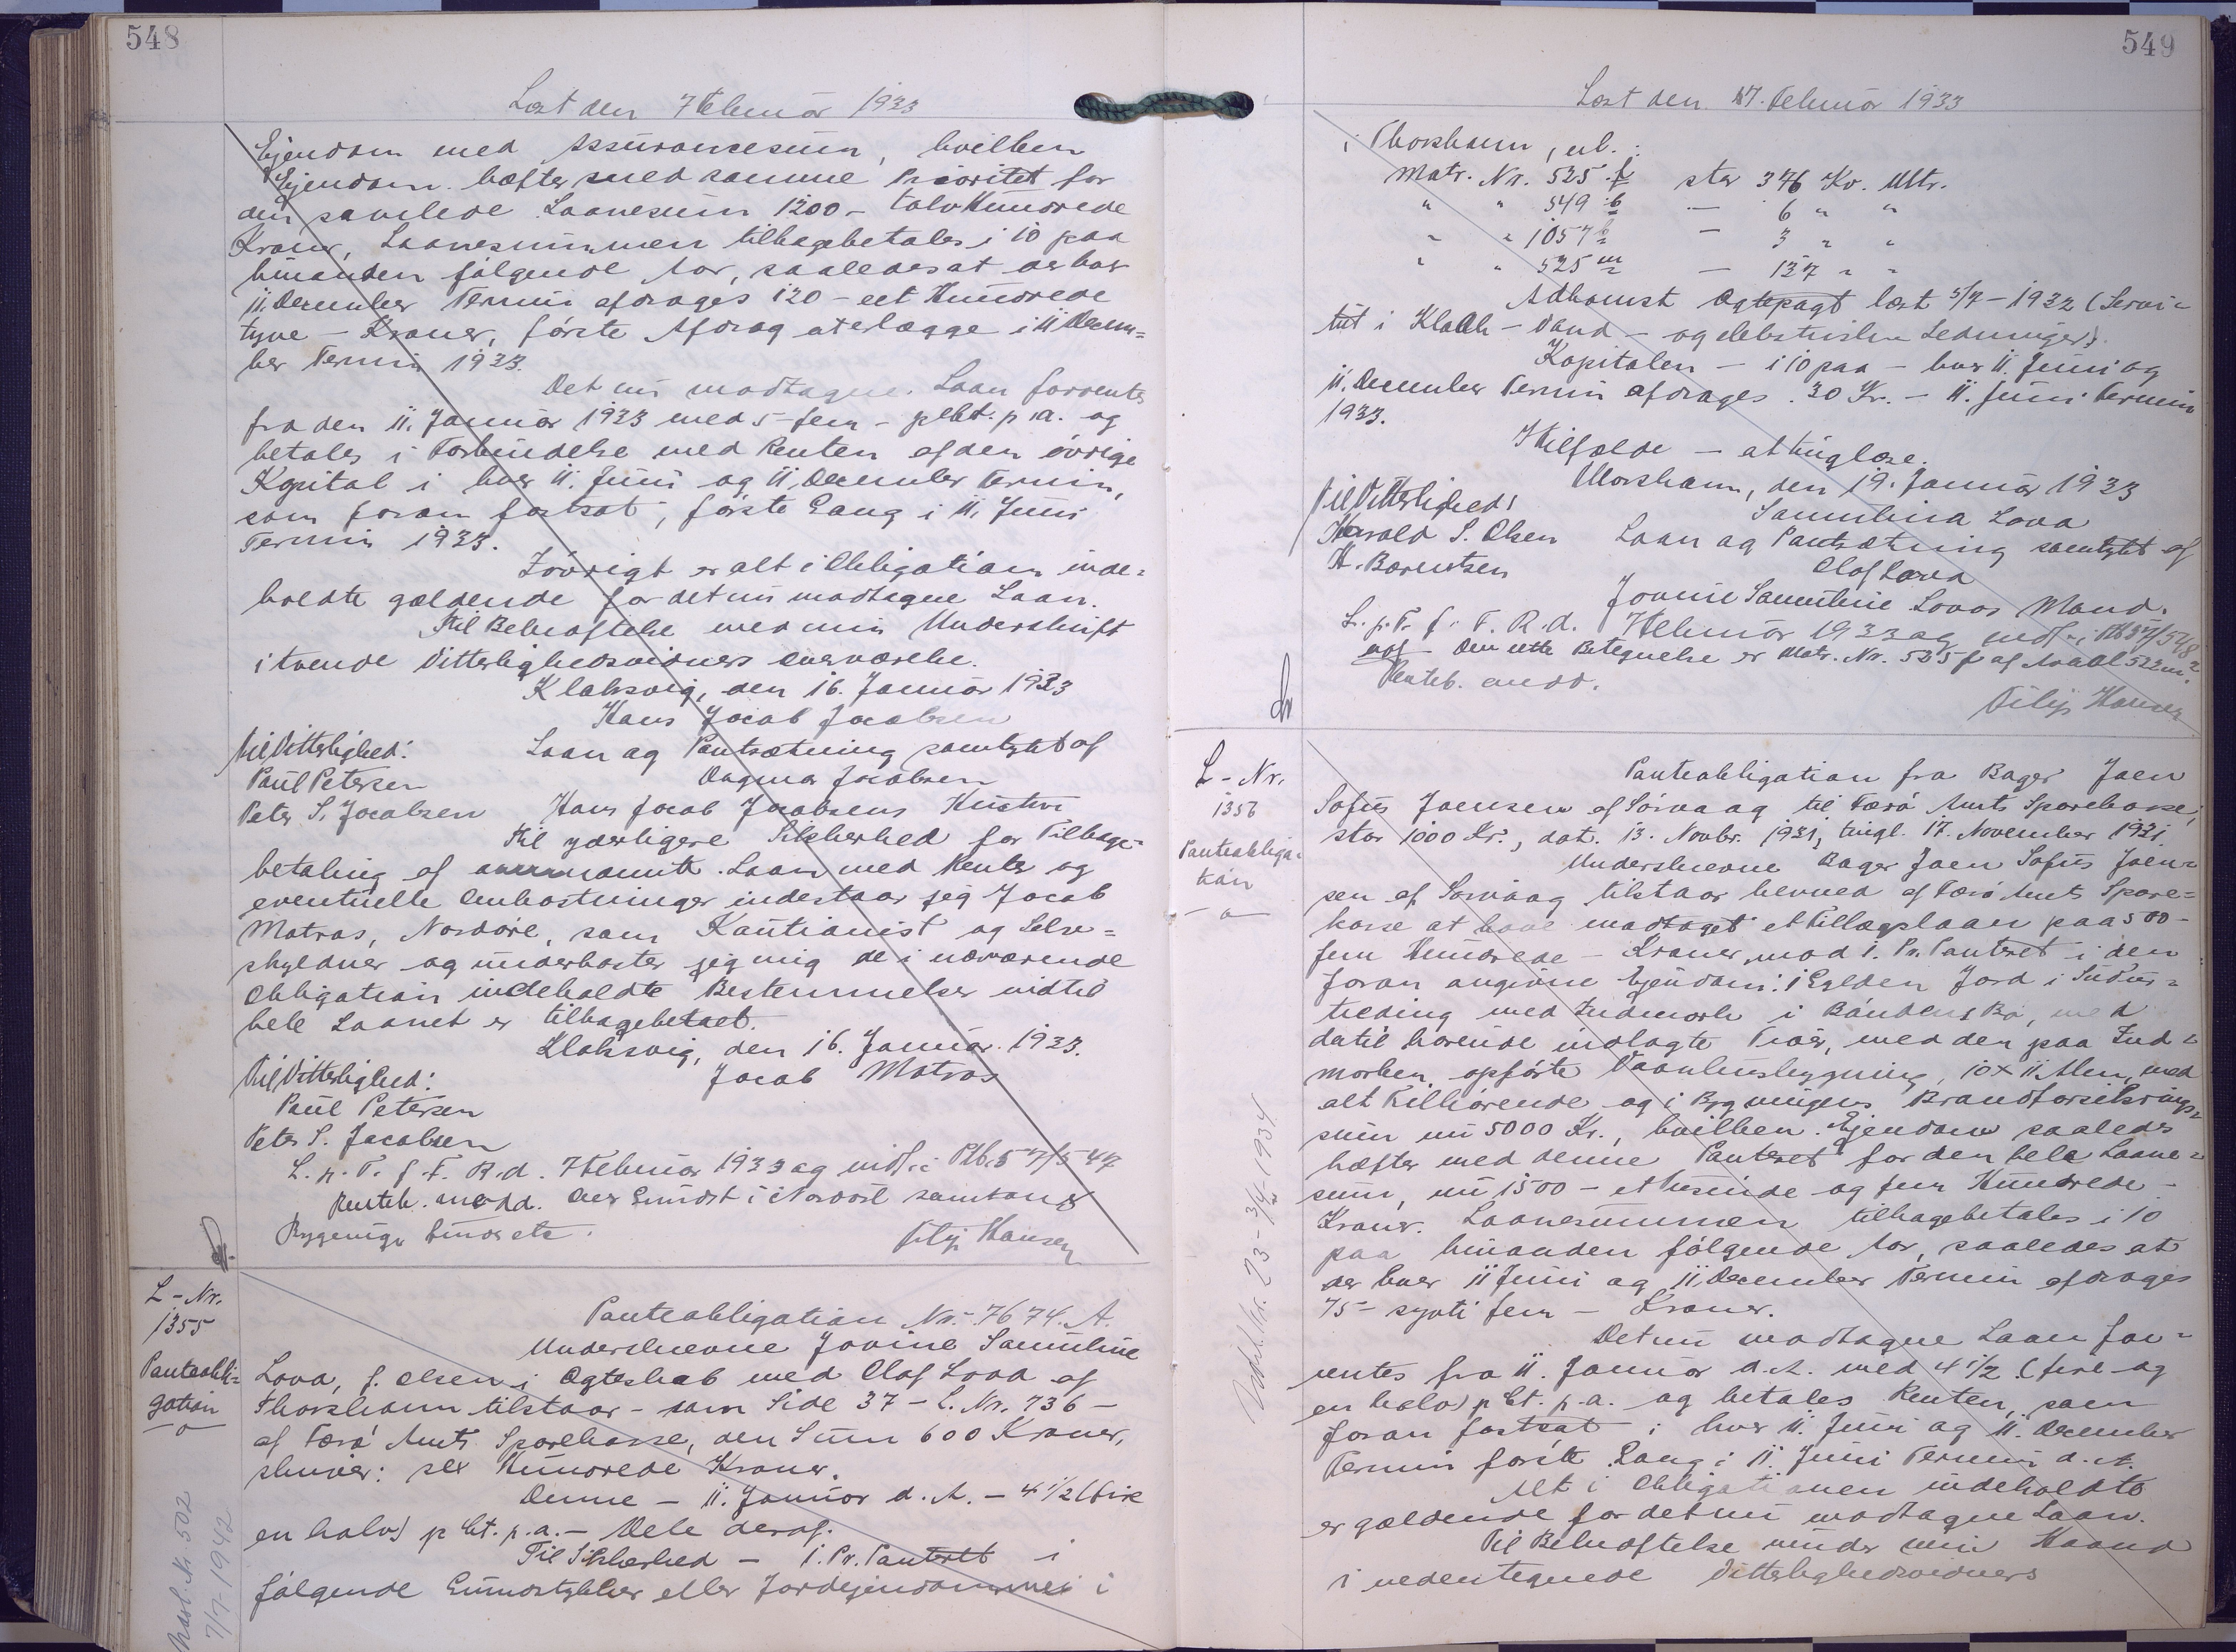 548
Læst den 7 Februar 1933
Ejendom med Assurancesum, hvilken
Ejendom hæfter med samme Prioritet for
den samlede Laanesum 1200 – tolv Hundrede
Kroner, Laanesummen tilbagebetales i 10 paa
hinanden følgende Aar, saaledes at der hver
11. December Termin afdrages 120 – eet Hundrede
tyve – Kroner, første Afdrag at erlægge i 11 Decem=
ber Termin 1933.
Det nu modtagne Laan forrentes
fra den 11. Januar 1933 med 5 – fem – pCt. p.a. og
betales i Forbindelse med Renten af den øvrige
Kapital i hver 11. Juni og 11. December Termin,
som foran fastsat, første Gang i 11. Juni
Termin 1933.
Iøvrigt er alt i Obligation inde=
holdte gældende for det nu modtagne Laan.
Til Bekræftelse med min Underskrift
i tvende Vitterlighedsvidners Overværelse.
Klaksvig, den 16. Januar 1933
Hans Jacob Jacobsen
Til Vitterlighed: Laan og Pantsætning samtykt af
Paul Petersen Dagmar Jacobsen
Peter S. Jacobsen Hans Jacob Jacobsens Hustru
Til yderligere Sikkerhed for Tilbage=
betaling af Laan med Renter og
eventuelle Omkostninger indestaar jeg Jacob
Matras, Nordøre, som Kautionist og Selv=
skyldner og underkaster jeg mig de i nærværende
Obligation indeholdte Bestemmelser indtil
hele Laanet er tilbagebetalt.
Klaksvig, den 16. Januar 1933.
Til Vitterlighed: Jacob Matras
Paul Petersen
Peter S. Jacobsen
L. p. T. f. F. R. d. 7 Februar 1933 og indf. i Ptb. 57/547
Panteh. medd. Grundst i samt
Bygninge
Filip Hansen
L – Nr.
1355
Panteobli=
gation
Panteobligation Nr. 7674. A.
Underskrevne Jovine Samuline
Lova, f. Olsen i Ægteskab med Olaf Lova af
Thorshavn tilstaar – som Side 37 – L. Nr. 736 –
af Færø Amts Sparekasse, den Sum 600 Kroner,
skriver: sex Hundrede Kroner.
Denne – 11. Januar d. A. – 4 1/2 (fire
en halv) pCt. p.a. – Dele deraf.
Til Sikkerhed – 1. Pr. Panteret i
følgende Grundstykker eller Jordejendomme i
Nr. 502
7/7-1942
549
Læst den 7. Februar 1933
i Thorshavn, nl.:
Matr. Nr. 525 f stor 376 Kv. Mtr.
" " 549 b – 6 " "
" " 1057 b – 3 " "
" " 525 m – 137 " "
Adkomst Ægtepagt læst 5/7 – 1932 (Servi=
tut i Kloak – Vand – og elektriske Ledninger).
Kapitalen – i 10 paa – hver 11. Juni og
11. December Termin afdrages 30 Kr. – 11. Juni Termin
1933.
I Tilfælde – at tinglæse.
Thorshavn, den 19. Januar 1933
Til Vitterlighed: Samulina Lova
Harald S. Olsen Laan og Pantsætning samtykt af
H. Barentsen Olaf Lova
Jovine Samuline Lovas Mand.
L. p. T. f. F. R. d. 7 Februar 1933 og indf. i Ptb 57/548
Den rette Betegnelse er Matr. Nr. 525 f af Areal 522 m².
Panteh. medd.
Filip Hansen
L – Nr.
1356
Panteobliga=
tion
Panteobligation fra Bager Joen
Sofus Joensen af Sörvaag til Færö Amts Sparekasse,
stor 1000 Kr., dat. 13. Novbr. 1931, tingl. 17. November 1931.
Underskrevne Bager Joen Sofus Joen=
sen af Sörvaag tilstaar herved af Færö Amts Spare=
kasse at have modtaget et Tillægslaan paa 500 –
fem Hundrede – Kroner, mod 1. Pr. Panteret i den
foran angivne Ejendom: 1 Gylden Jord i
med Indmark i med
dertil hørende indlagte med den paa Ind=
marken opførte Vaanhusbygning, 10 x 11 Alen, med
alt Tilhørende og i Bygningens Brandforsikrings=
sum nu 5000 Kr., hvilken Ejendom saaledes
hæfter med denne Panteret for den hele Laane=
sum, nu 1500 – et tusinde og fem Hundrede –
Kroner. Laanesummen tilbagebetales i 10
paa hinanden følgende Aar, saaledes at
der hver 11 Juni og 11. December Termin afdrages
75 – syvti fem – Kroner.
Det nu modtagne Laan for=
rentes fra 11. Januar d. A. med 4 1/2 (fire og
en halv) pCt. p.a. og betales Renten, som
foran fastsat i hver 11. Juni og 11. December
Termin første Gang i 11. Juni Termin d. A.
Alt i Obligationen indeholdte
er gældende for det nu modtagne Laan.
Til Bekræftelse under min Haand
i nedentegnede Vitterlighedsvidners